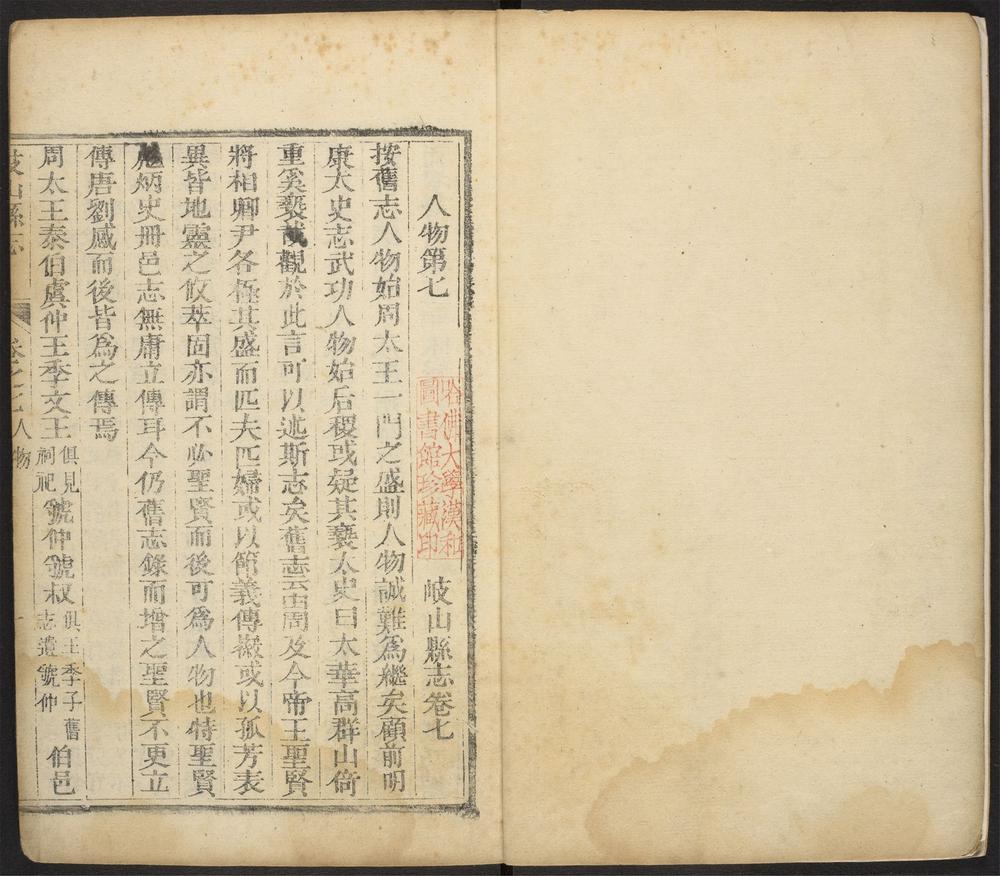 人物第七 岐山縣志卷七
哈佛大學漢和
圖書館珍藏印
按舊志人物始周太王一門之盛則人物誠難為繼矣顧前明
康太史志武功人物始后稷或疑其褻太史曰太華高群山倚
重奚褻哉觀於此言可以述斯志矣舊志云由周及今帝王聖賢
將相卿尹各極其盛而匹夫匹婦或以節義傳徽或以孤芳表
異皆地靈之攸萃固亦謂不必聖賢而後可為人物也特聖賢
炳史冊邑志無庸立傳耳今仍舊志錄而增之聖賢不更立
傳唐劉感而後皆為之傳焉
周太王泰伯虞仲王季文王俱見祠祀虢仲虢叔俱王季子舊志遺虢仲伯邑
岐山縣志 卷之七人物 一